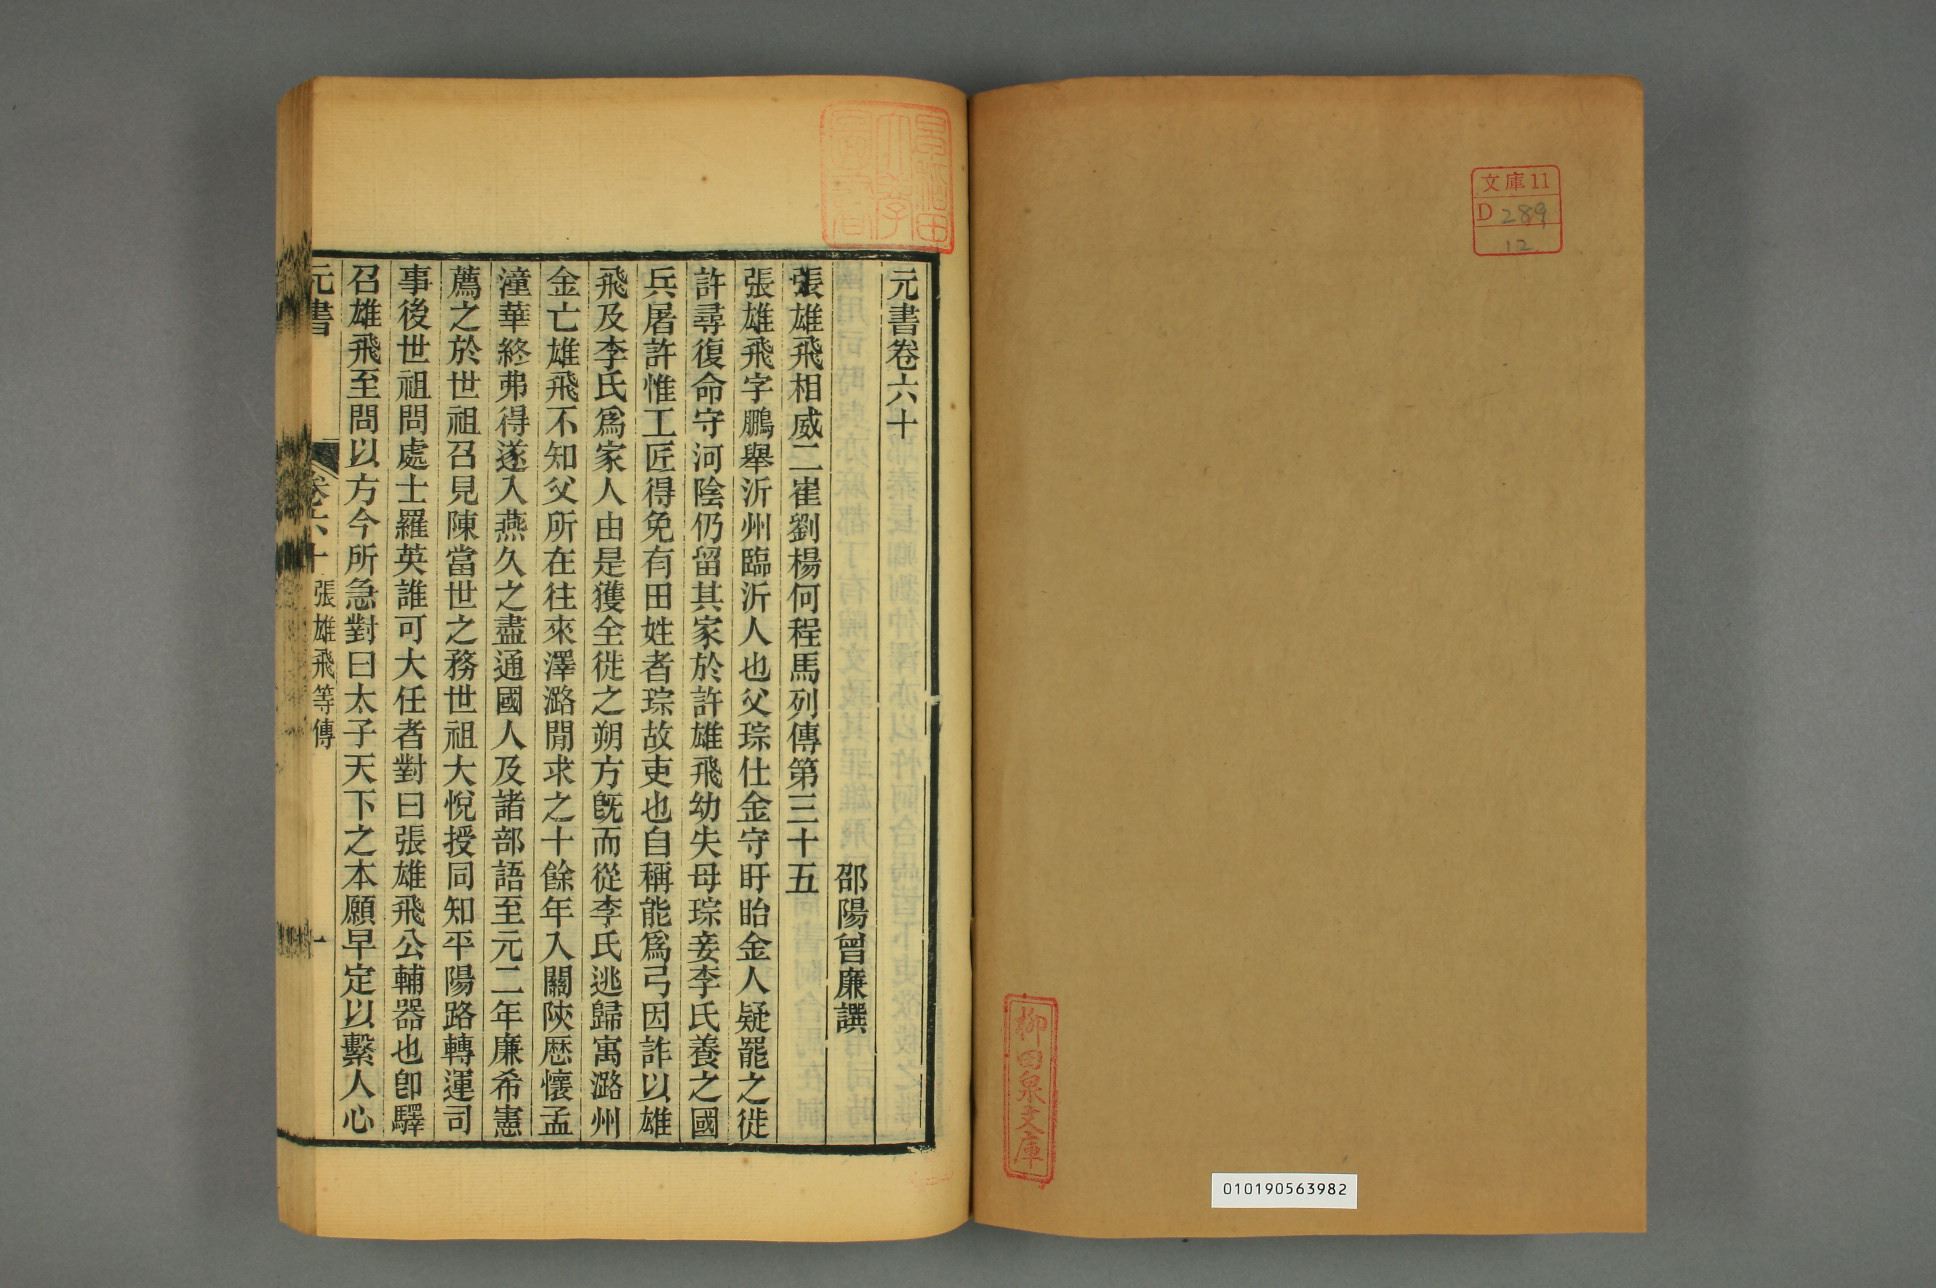 文庫11
D 289
12
柳田泉文庫
010190563982
早稲田
大學
圖書
元書卷六十
邵陽曾廉譔
張雄飛相威二崔劉楊何程馬列傳第三十五
張雄飛字鵬舉沂州臨沂人也父琮仕金守盱眙金人疑罷之徙
許尋復命守河陰仍留其家於許雄飛幼失母琮妾李氏養之國
兵屠許惟工匠得免有田姓者琮故吏也自稱能爲弓因詐以雄
飛及李氏爲家人由是獲全徙之朔方旣而從李氏逃歸寓潞州
金亡雄飛不知父所在往來澤潞閒求之十餘年入關陝厯懷孟
潼華終弗得遂入燕久之盡通國人及諸部語至元二年廉希憲
薦之於世祖召見陳當世之務世祖大悅授同知平陽路轉運司
事後世祖問處士羅英誰可大任者對曰張雄飛公輔器也卽驛
召雄飛至問以方今所急對曰太子天下之本願早定以繫人心
元書
卷六十
張雄飛等傳
一